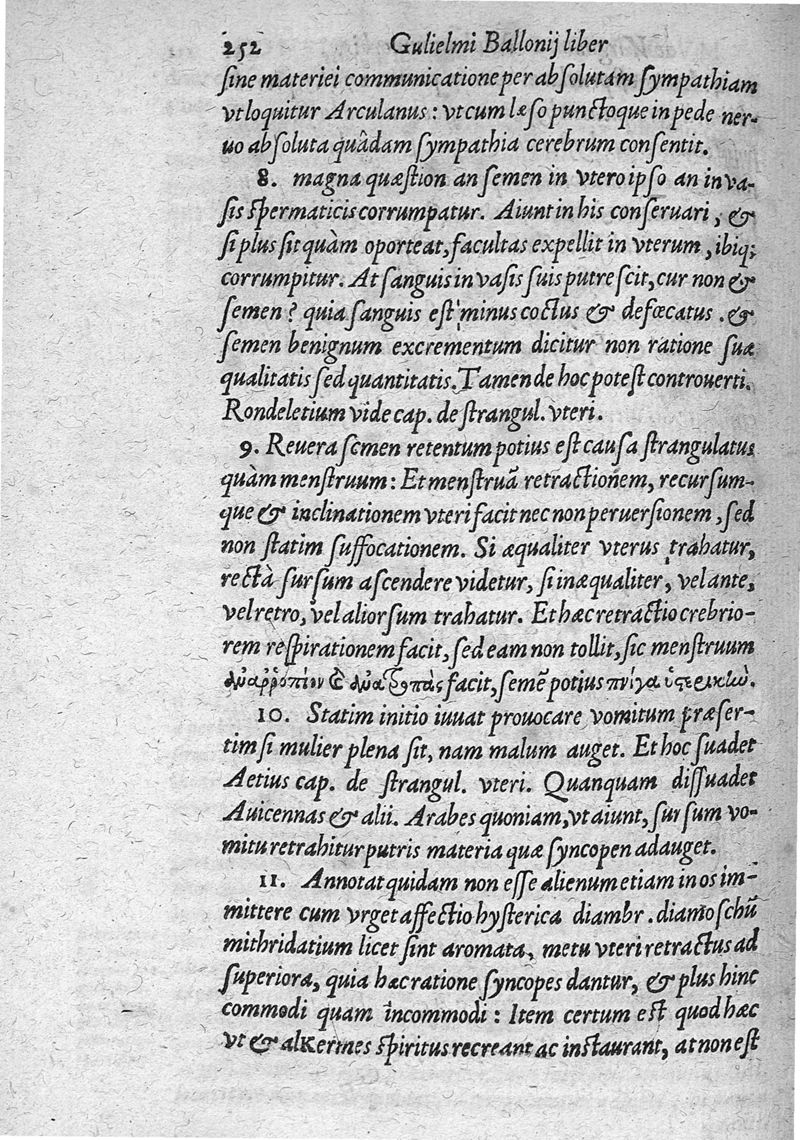 252 Gulielmi Ballonij liber
sine materiei communicatione per absolutam sympathiam
vt loquitur Arculanus : vt cum læso punctoque in pede ner-
uo absoluta quâdam sympathia cerebrum consentit.
8. magna quæstion an semen in vtero ipso an in va-
sis spermaticis corrumpatur. Aiunt in his conseruari, &
si plus sit quàm oporteat, facultas expellit in vterum, ibiq;
corrumpitur. At sanguis in vasis suis putrescit, cur non &
semen ? quia sanguis est minus coctus & defœcatus . &
semen benignum excrementum dicitur non ratione suæ
qualitatis sed quantitatis. Tamen de hoc potest controuerti.
Rondeletium vide cap. de strangul. vteri.
9. Reuera semen retentum potius est causa strangulatus
quàm menstruum : Et menstruã retractionem, recursum-
que & inclinationem vteri facit nec non peruersionem, sed
non statim suffocationem. Si æqualiter vterus trahatur,
rectà sursum ascendere videtur, si inæqualiter, vel ante,
vel retro, vel aliorsum trahatur. Et hæc retractio crebrio-
rem respirationem facit, sed eam non tollit, sic menstruum
facit, semẽ potius πνίγα ὑστερικὼ.
10. Statim initio iuuat prouocare vomitum præser-
tim si mulier plena sit, nam malum auget. Et hoc suadet
Aetius cap. de strangul. vteri. Quanquam dissuadet
Auicennas & alii. Arabes quoniam, vt aiunt, sursum vo-
mitu retrahitur putris materia quæ syncopen adauget.
11. Annotat quidam non esse alienum etiam in os im-
mittere cum vrget affectio hysterica diambr . diamoschũ
mithridatium licet sint aromata, metu vteri retractus ad
superiora, quia hac ratione syncopes dantur, & plus hinc
commodi quam incommodi : Item certum est quod hæc
vt & alKermes spiritus recreant ac instaurant, at non est